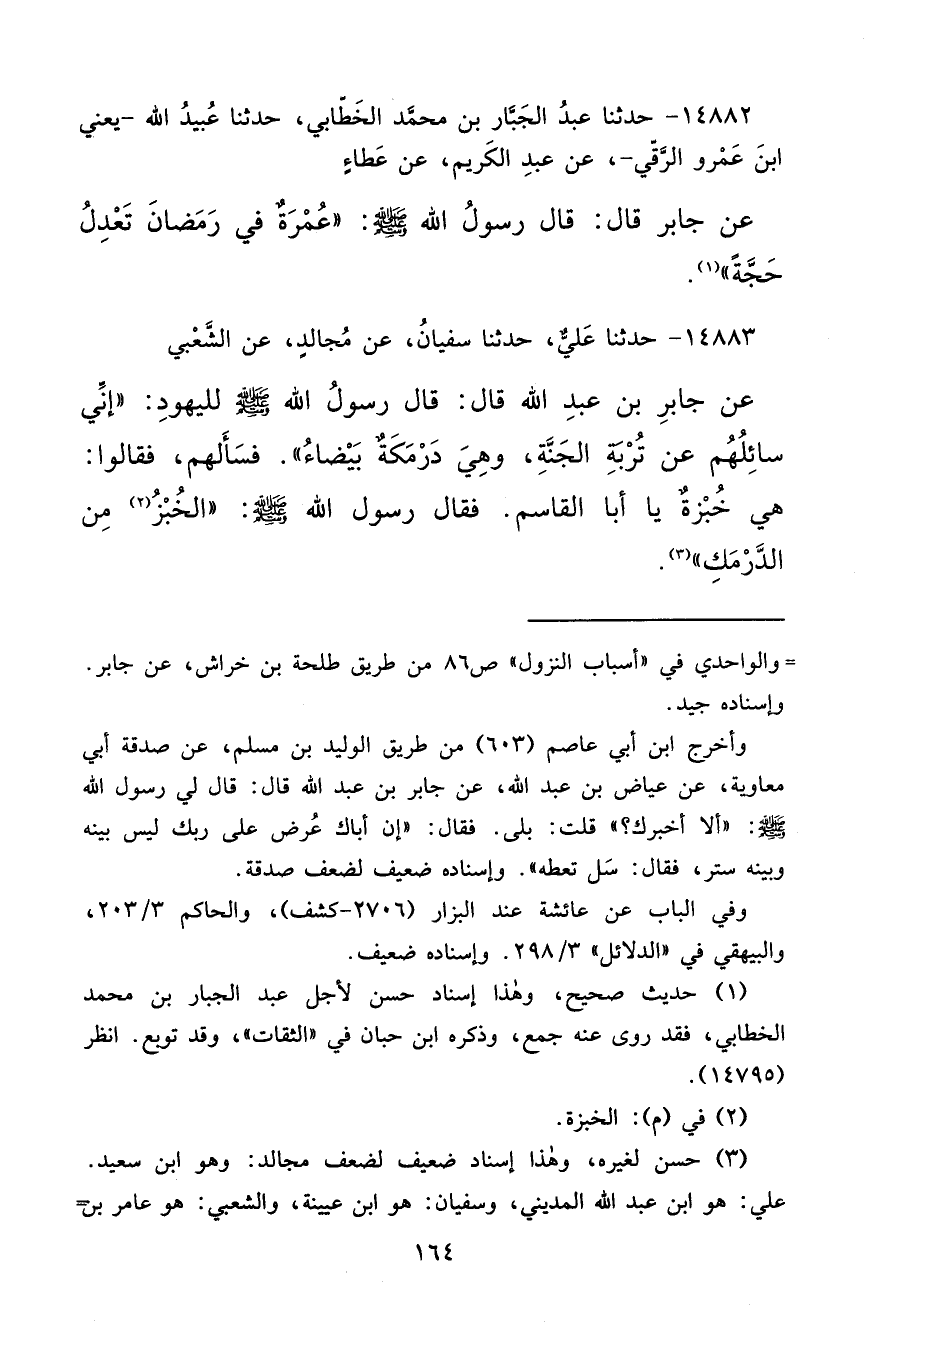 ١٤٨٨٢- حدثنا عبدُ الجَبَّار بن محمَّد الخَطّابي، حدثنا عُبيدُ الله -يعني
ابنَ عَمْرو الرَّقِّي-، عن عبدِ الكَريم، عن عَطاءٍ
عن جابر قال: قال رسولُ الله ﷺ: «عُمْرَةٌ في رَمَضانَ تَعْدِلُ
حَجَّةً»(١).
١٤٨٨٣- حدثنا عَليٌّ، حدثنا سفيانُ، عن مُجالدٍ، عن الشَّعْبي
عن جابرِ بن عبدِ الله قال: قال رسولُ الله ﷺ لليهودِ: «إنِّي
سائِلُهُم عن تُرْبَةِ الجَنَّةِ، وهِيَ دَرْمَكَةٌ بَيْضاءُ». فسَأَلهم، فقالوا:
هي خُبْزةٌ يا أبا القاسم. فقال رسول الله ﷺ: «الخُبْزُ(٢) مِن
الدَّرْمَكِ»(٣).
= والواحدي في «أسباب النزول» ص٨٦ من طريق طلحة بن خراش، عن جابر.
وإسناده جيد.
وأخرج ابن أبي عاصم (٦٠٣) من طريق الوليد بن مسلم، عن صدقة أبي
معاوية، عن عياض بن عبد الله، عن جابر بن عبد الله قال: قال لي رسول الله
ﷺ: «ألا أخبرك؟» قلت: بلى. فقال: «إن أباك عُرض على ربك ليس بينه
وبينه ستر، فقال: سَل تعطه». وإسناده ضعيف لضعف صدقة.
وفي الباب عن عائشة عند البزار (٢٧٠٦-كشف)، والحاكم ٢٠٣/٣،
والبيهقي في «الدلائل» ٢٩٨/٣. وإسناده ضعيف.
(١) حديث صحيح، وهٰذا إسناد حسن لأجل عبد الجبار بن محمد
الخطابي، فقد روى عنه جمع، وذكره ابن حبان في «الثقات»، وقد توبع. انظر
(١٤٧٩٥).
(٢) في (م): الخبزة.
(٣) حسن لغيره، وهٰذا إسناد ضعيف لضعف مجالد: وهو ابن سعيد.
علي: هو ابن عبد الله المديني، وسفيان: هو ابن عيينة، والشعبي: هو عامر بن=
١٦٤